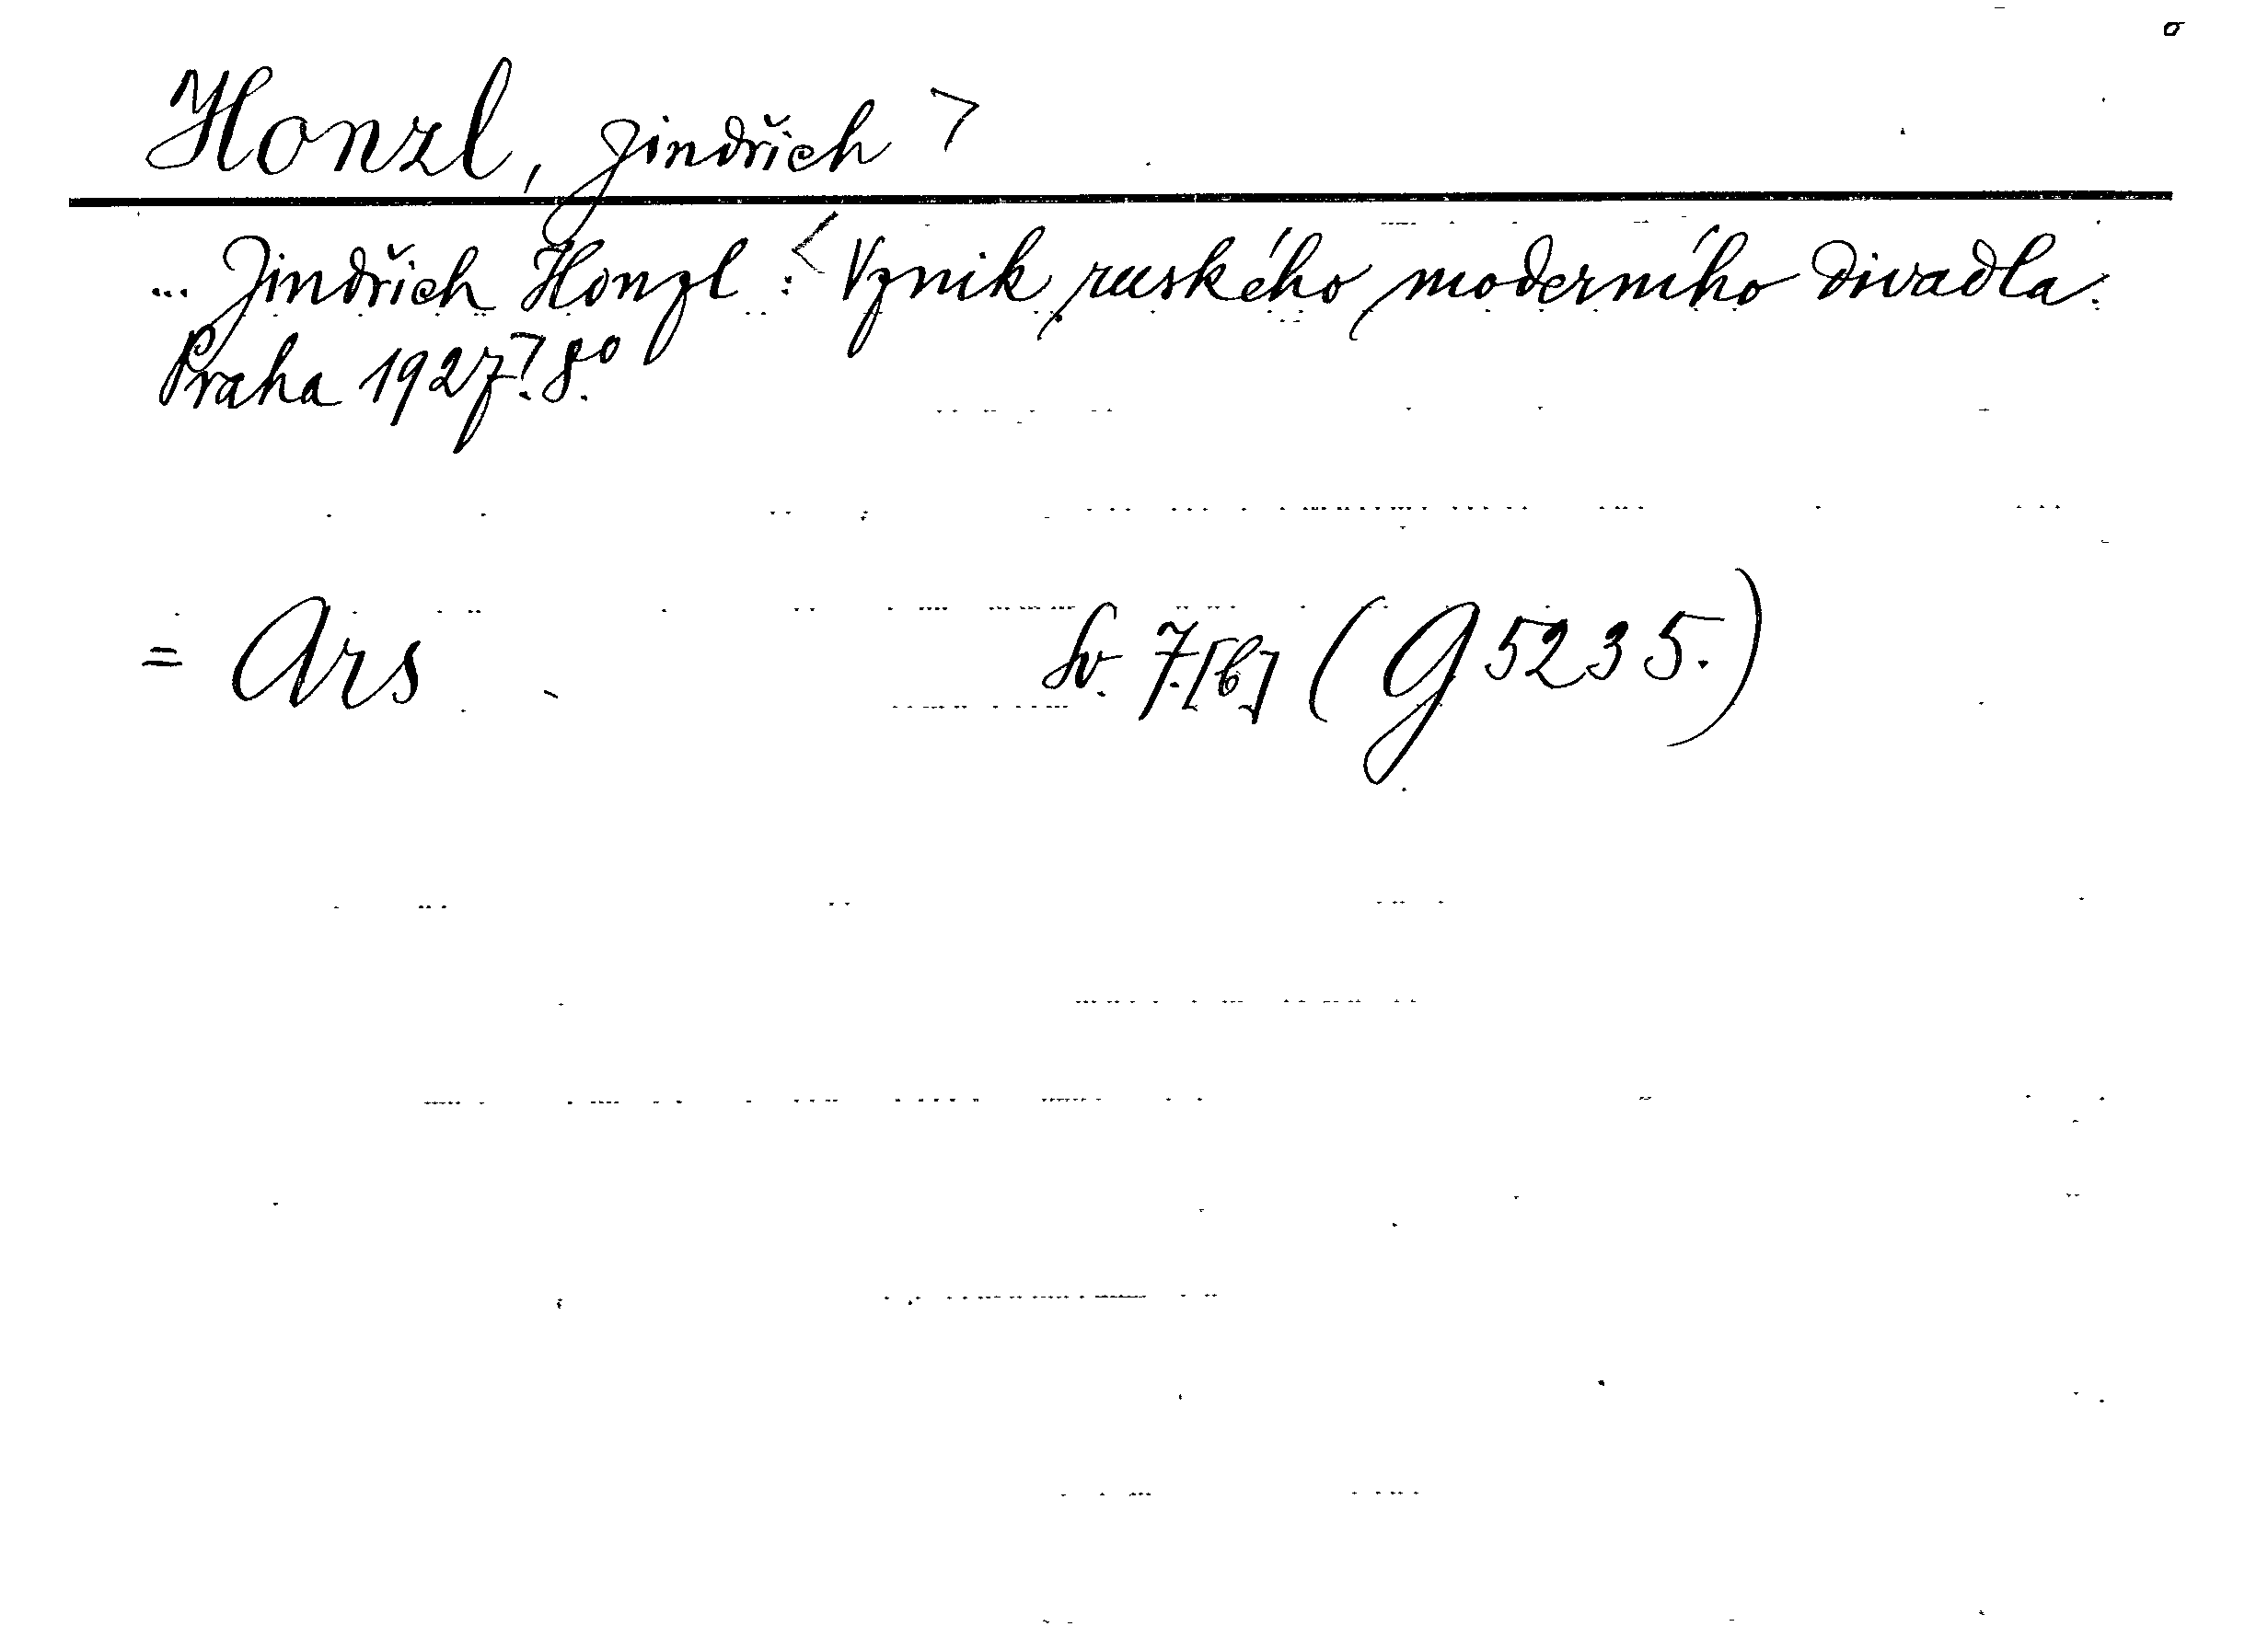 Honzl, Jindřich ┐
... Jindřich Honzl: <Vznik ruského moderního divadla.
Praha 1927┐. 8.º
= Ars Sv. 7.[b] (G 5235.)